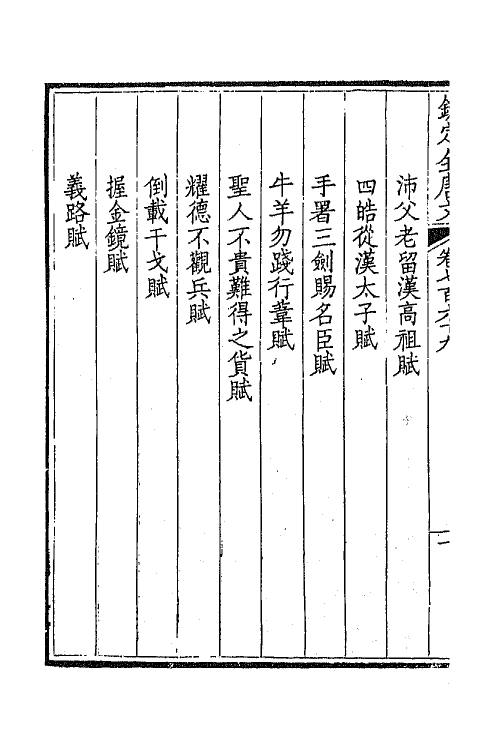 欽定全唐文 卷七百六十九 一
沛父老留漢高祖賦
四皓從漢太子賦
手署三劍賜名臣賦
牛羊勿踐行葦賦
聖人不貴難得之貨賦
耀德不觀兵賦
倒載干戈賦
握金鏡賦
義路賦